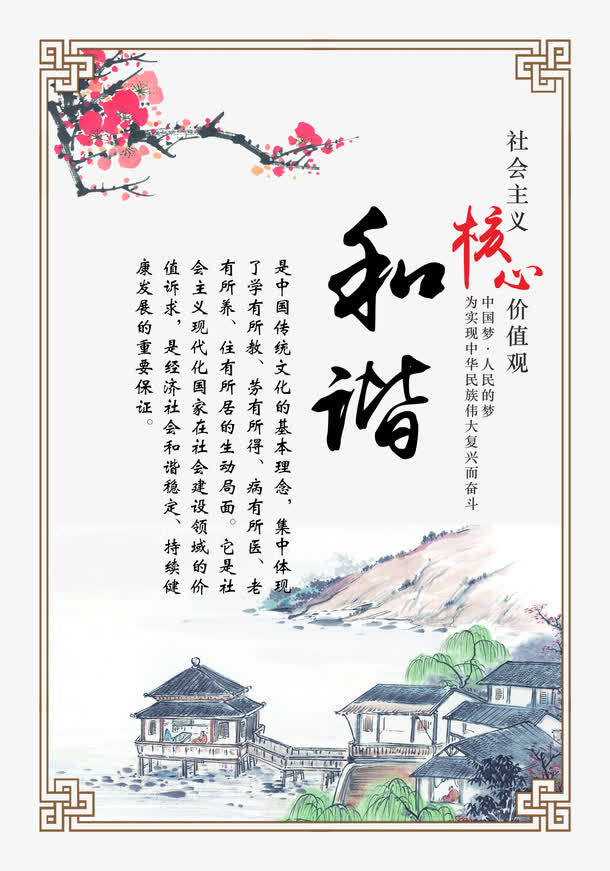 社会主义核心价值观
中国梦·人民的梦
为实现中华民族伟大复兴而奋斗
和谐
是中国传统文化的基本理念，集中体现
了学有所教、劳有所得、病有所医、老
有所养、住有所居的生动局面。它是社
会主义现代化国家在社会建设领域的价
值诉求，是经济社会和谐稳定、持续健
康发展的重要保证。